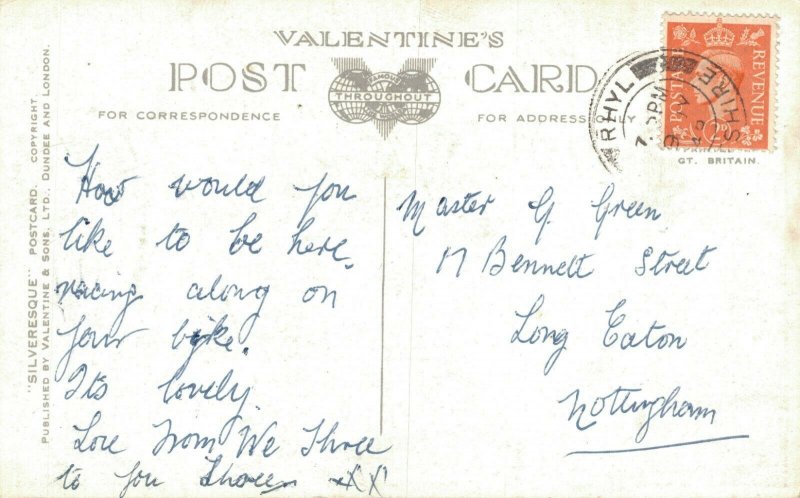 VALENTINE'S
POST CARD
FAMOUS
THROUGHOUT
THE WORLD
FOR CORRESPONDENCE
FOR ADDRESS ONLY
"SILVERESQUE" POSTCARD. COPYRIGHT
PUBLISHED BY VALENTINE & SONS, LTD., DUNDEE AND LONDON.
POSTAGE REVENUE
2D
RHYL
SHIRE
PRINTED
GT. BRITAIN.
How would you
like to be here,
racing along on
your byke.
It's lovely.
Love from We Three
to you three XX
Master G. Green
17 Bennett Street
Long Eaton
Nottingham